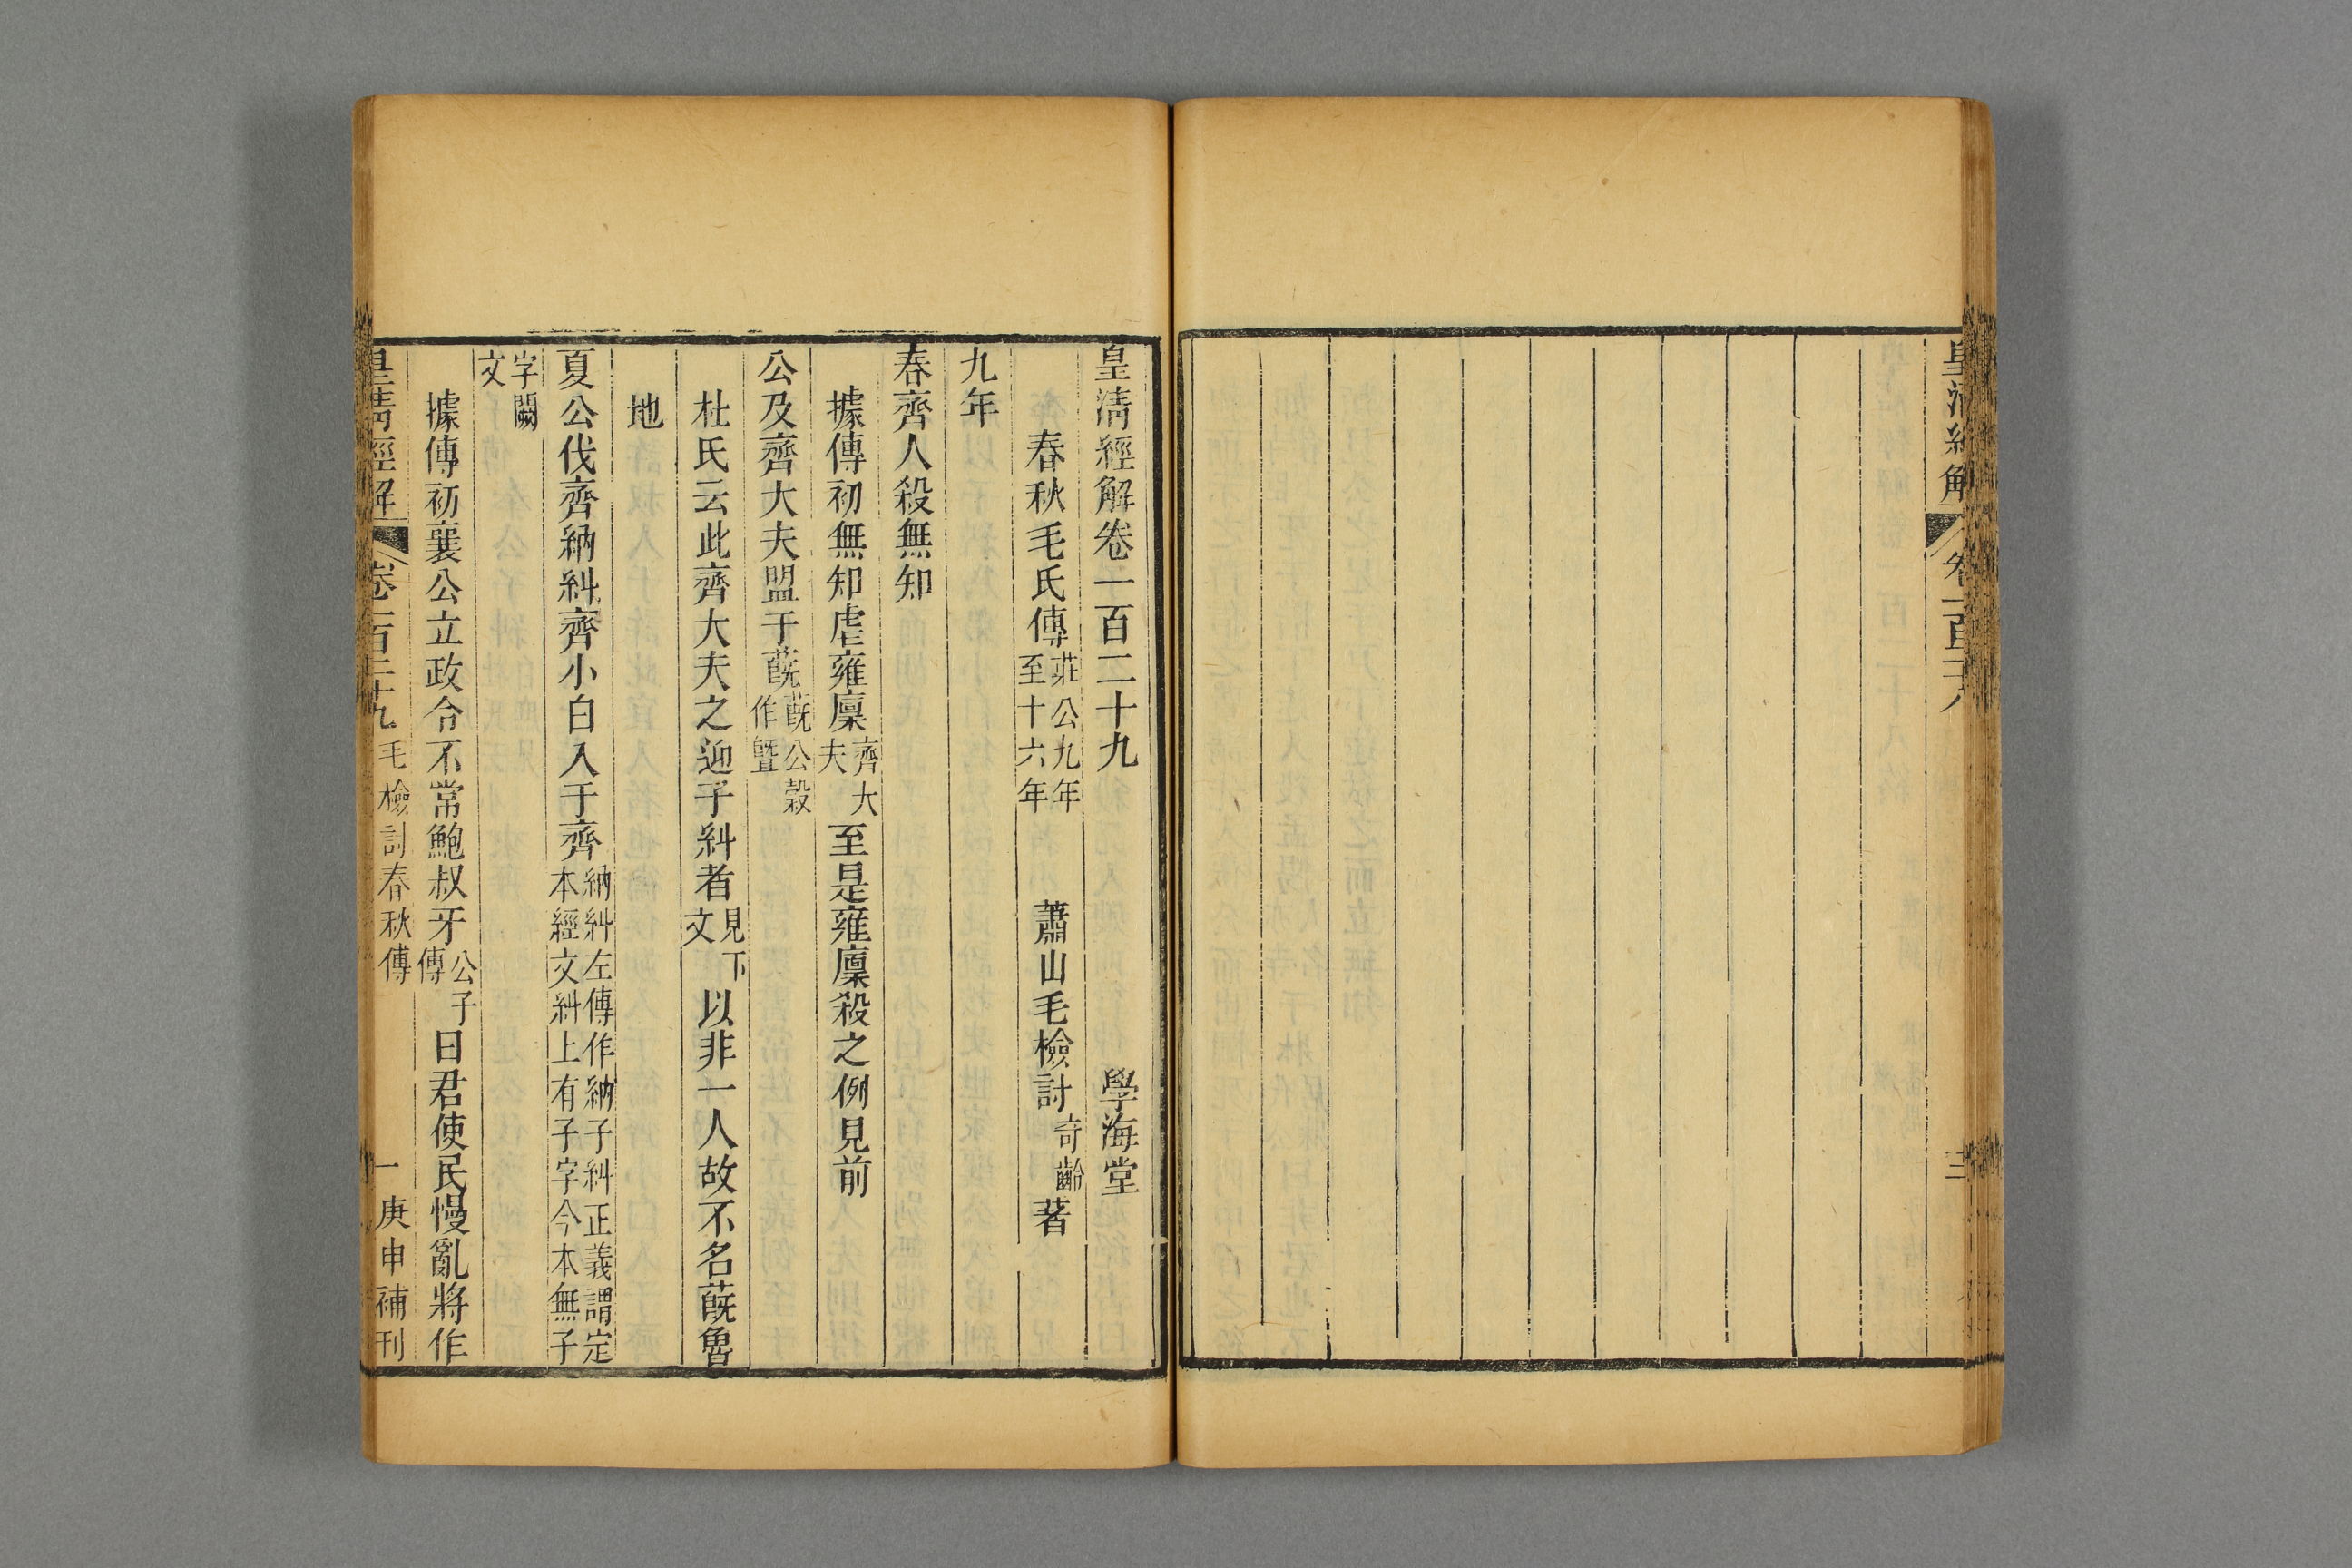 皇清經解 卷一百二十八 三
皇清經解卷一百二十九 學海堂
春秋毛氏傳 莊公九年至十六年 蕭山毛檢討奇齡著
九年
春齊人殺無知
據傳初無知虐雍廩齊大夫至是雍廩殺之例見前
公及齊大夫盟于蔇蔇公穀作曁
杜氏云此齊大夫之迎子糾者見下文以非一人故不名蔇魯
地
夏公伐齊納糾齊小白入于齊納糾左傳作納子糾正義謂定本經文糾上有子字今本無子
字闕文
據傳初襄公立政令不常鮑叔牙公子傳曰君使民慢亂將作
皇清經解 卷一百二十九 毛檢討春秋傳 一 庚申補刊